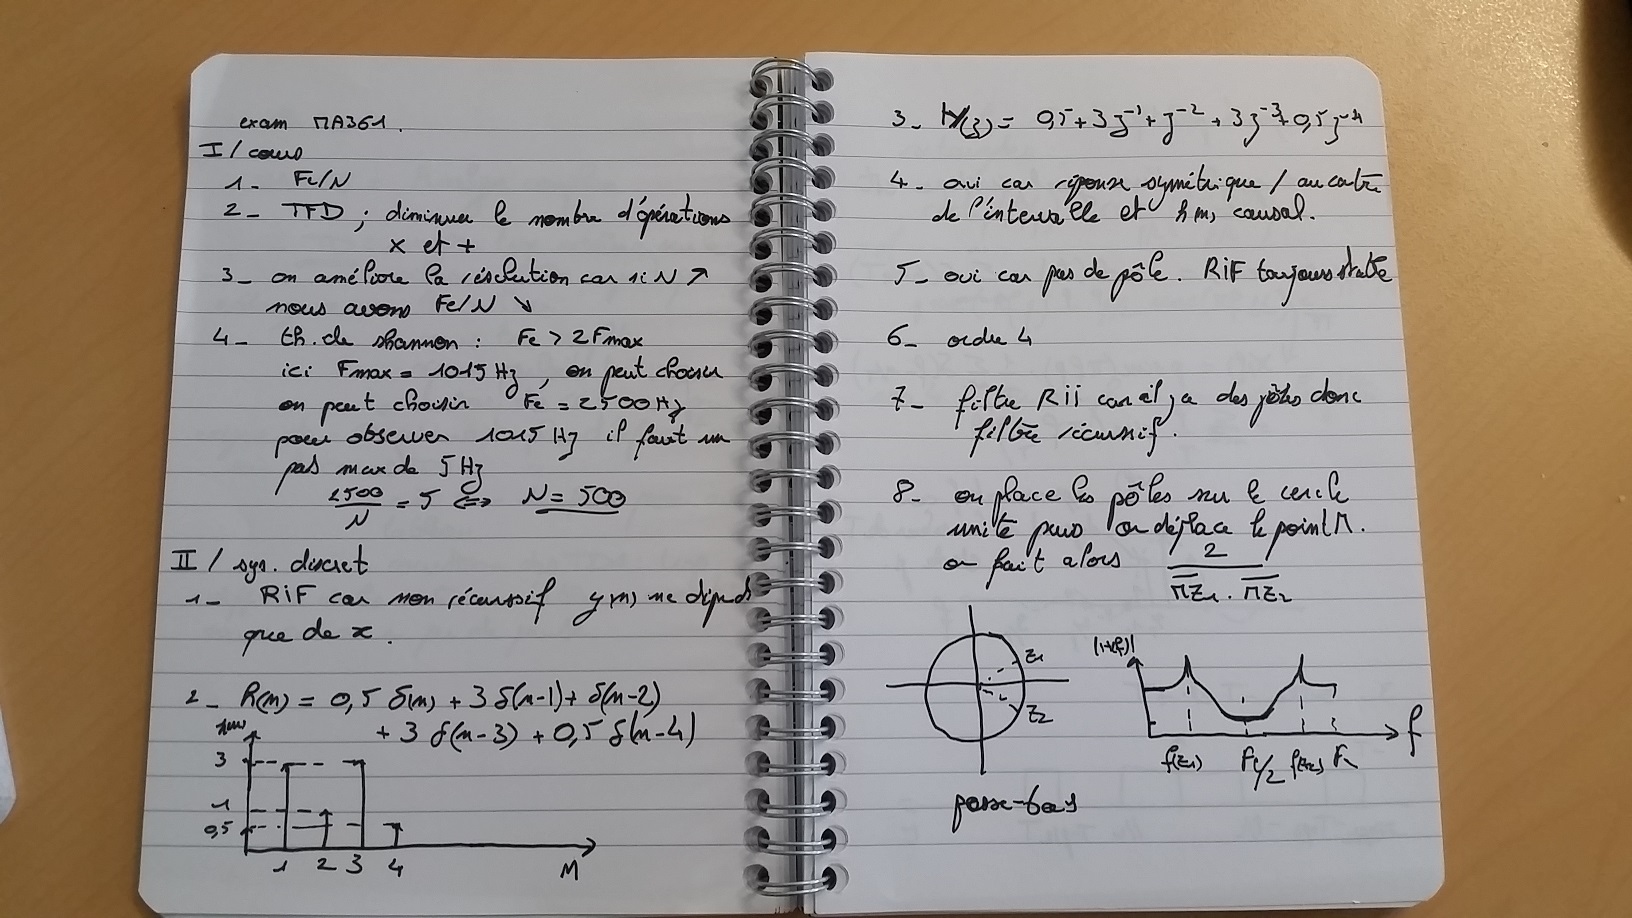 exam MA361.
I/ cours
1- Fe/N
2- TFD ; diminue le nombre d'opérations
x et +
3- on améliore la résolution car si N ↗
nous avons Fe/N ↘
4- th. de shannon : Fe > 2Fmax
ici Fmax = 1015Hz, on peut choisir
on peut choisir Fe = 2500Hz
pour observer 1015Hz il faut un
pas max de 5Hz
2500/N = 5 <=> N = 500
II/ sys. discret
1- RiF car non récursif y(n) ne dépend
que de x.
2- h(n) = 0,5 δ(n) + 3 δ(n-1) + δ(n-2)
+ 3 δ(n-3) + 0,5 δ(n-4)
h(n)
3
1
0,5
1 2 3 4 n
3- H(z) = 0,5 + 3z⁻¹ + z⁻² + 3z⁻³ + 0,5z⁻⁴
4- oui car réponse symétrique / au centre
de l'intervalle et h(n) causal.
5- oui car pas de pôle. RiF toujours stable
6- ordre 4
7- filtre Rii car il y a des pôles donc
filtre récursif.
8- on place les pôles sur le cercle
unité puis on déplace le point M.
on fait alors 2/(MZ1 . MZ2)
|H(f)|
z1
z2
f(z1) Fe/2 f(z2) Fe f
passe-bas